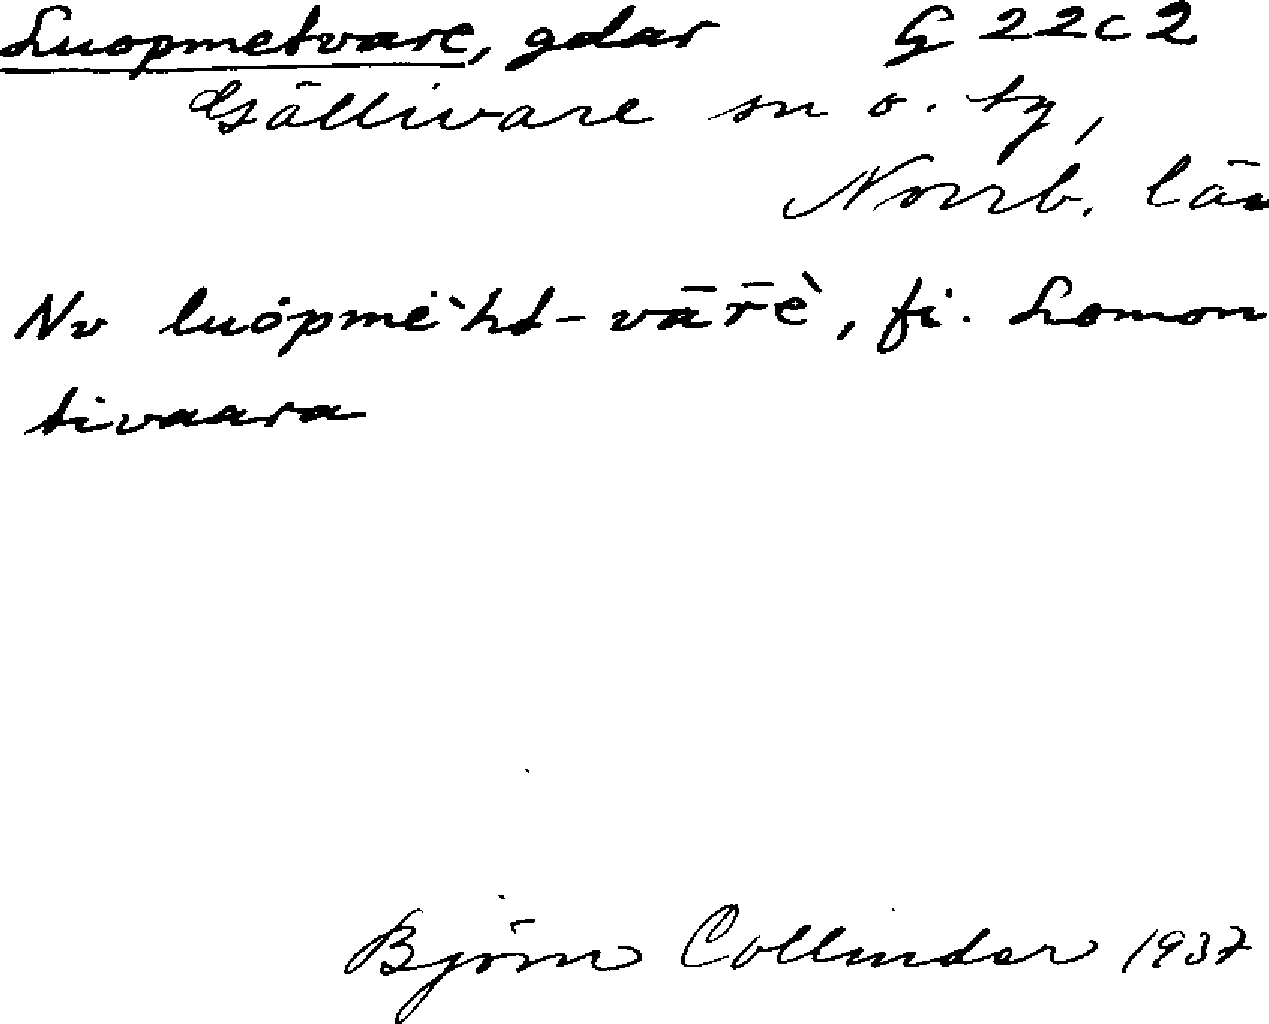 Luopmetvare, gdar G 22c2
Gällivare sn o. tg,
Norrb. län
Nv luȯpmėˋht-vārḕ, fi. Lomon
tivaara
Björn Collinder 1937